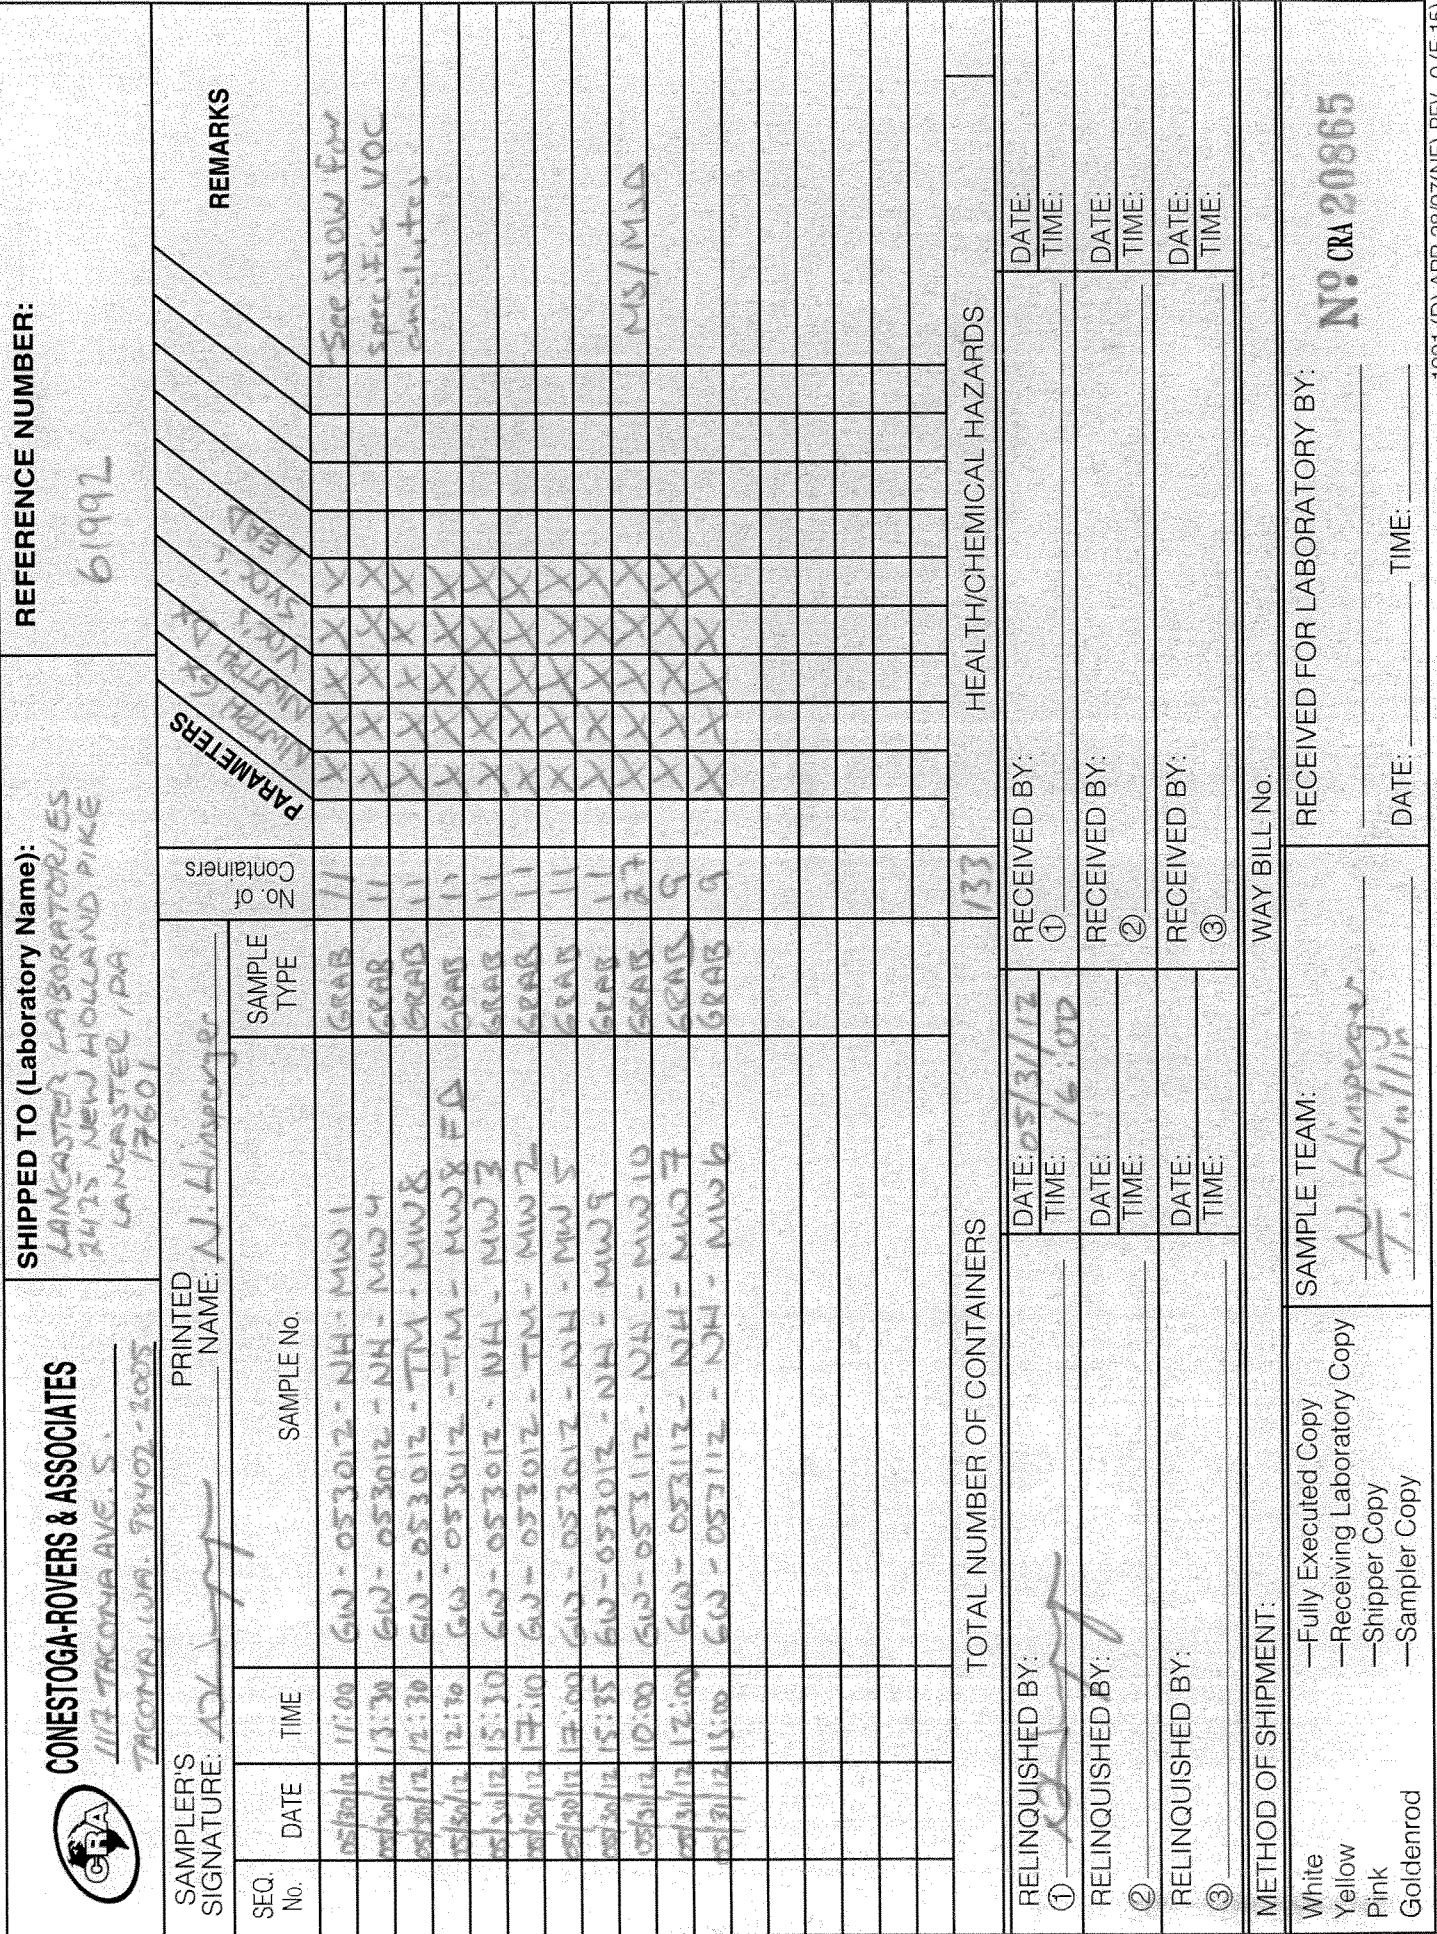 CRA
CONESTOGA-ROVERS & ASSOCIATES
1117 TACOMA AVE. S.
TACOMA, WA. 98402-2005
SHIPPED TO (Laboratory Name):
LANCASTER LABORATORIES
2425 NEW HOLLAND PIKE
LANCASTER, PA
17601
REFERENCE NUMBER:
61992
SAMPLER'S
SIGNATURE:
PRINTED
NAME: N. Hinsperger
PARAMETERS
NWTPH GX
NWTPH DX
VOC's
SVOC's
LEAD
REMARKS
SEQ. No. DATE TIME SAMPLE No. SAMPLE TYPE No. of Containers
05/30/12 11:00 GW-053012-NH-MW1 GRAB 11 X X X X X See SOW for
05/30/12 13:30 GW-053012-NH-MW4 GRAB 11 X X X X X specific VOC
05/30/12 12:30 GW-053012-TM-MW8 GRAB 11 X X X X X analytes
05/30/12 12:30 GW-053012-TM-MW8 FD GRAB 11 X X X X X
05/30/12 15:30 GW-053012-NH-MW3 GRAB 11 X X X X X
05/30/12 17:10 GW-053012-TM-MW2 GRAB 11 X X X X X
05/30/12 17:00 GW-053012-NH-MW5 GRAB 11 X X X X X
05/30/12 15:35 GW-053012-NH-MW9 GRAB 11 X X X X X
05/31/12 10:00 GW-053112-NH-MW10 GRAB 27 X X X X X MS/MSD
05/31/12 12:00 GW-053112-NH-MW7 GRAB 9 X X X X X
05/31/12 GW-053112-NH-MW6 GRAB 9 X X X X X
TOTAL NUMBER OF CONTAINERS 133 HEALTH/CHEMICAL HAZARDS
RELINQUISHED BY: DATE: 05/31/12 RECEIVED BY: DATE:
① TIME: 16:00 ① TIME:
RELINQUISHED BY: DATE: RECEIVED BY: DATE:
② TIME: ② TIME:
RELINQUISHED BY: DATE: RECEIVED BY: DATE:
③ TIME: ③ TIME:
METHOD OF SHIPMENT: WAY BILL No.
White —Fully Executed Copy
Yellow —Receiving Laboratory Copy
Pink —Shipper Copy
Goldenrod —Sampler Copy
SAMPLE TEAM:
N. Hinsperger
T. Mullin
RECEIVED FOR LABORATORY BY:
DATE: TIME:
Nº CRA 20865